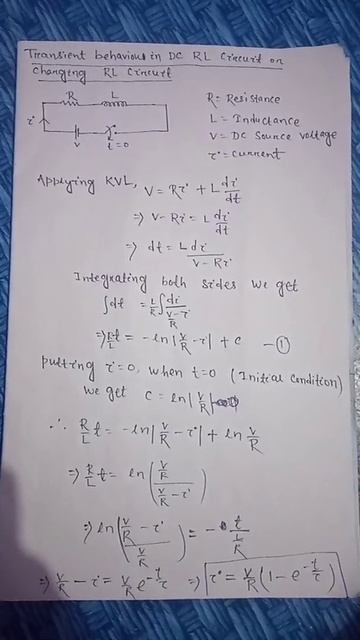 Transient behaviour in DC RL Circuit on
changing RL Circuit
R L
i
V t=0
R = Resistance
L = Inductance
V = DC Source voltage
i = current
Applying KVL, V = Ri + L di/dt
⇒ V - Ri = L di/dt
⇒ dt = L di / (V - Ri)
Integrating both sides we get
∫dt = L/R ∫ di / (V/R - i)
⇒ R/L t = -ln|V/R - i| + c —①
putting i=0, when t=0 (Initial condition)
we get c = ln|V/R|
∴ R/L t = -ln|V/R - i| + ln V/R
⇒ R/L t = ln((V/R) / (V/R - i))
⇒ ln((V/R - i) / (V/R)) = - t / (L/R)
⇒ V/R - i = V/R e^(-t/τ) ⇒ i = V/R (1 - e^(-t/τ))